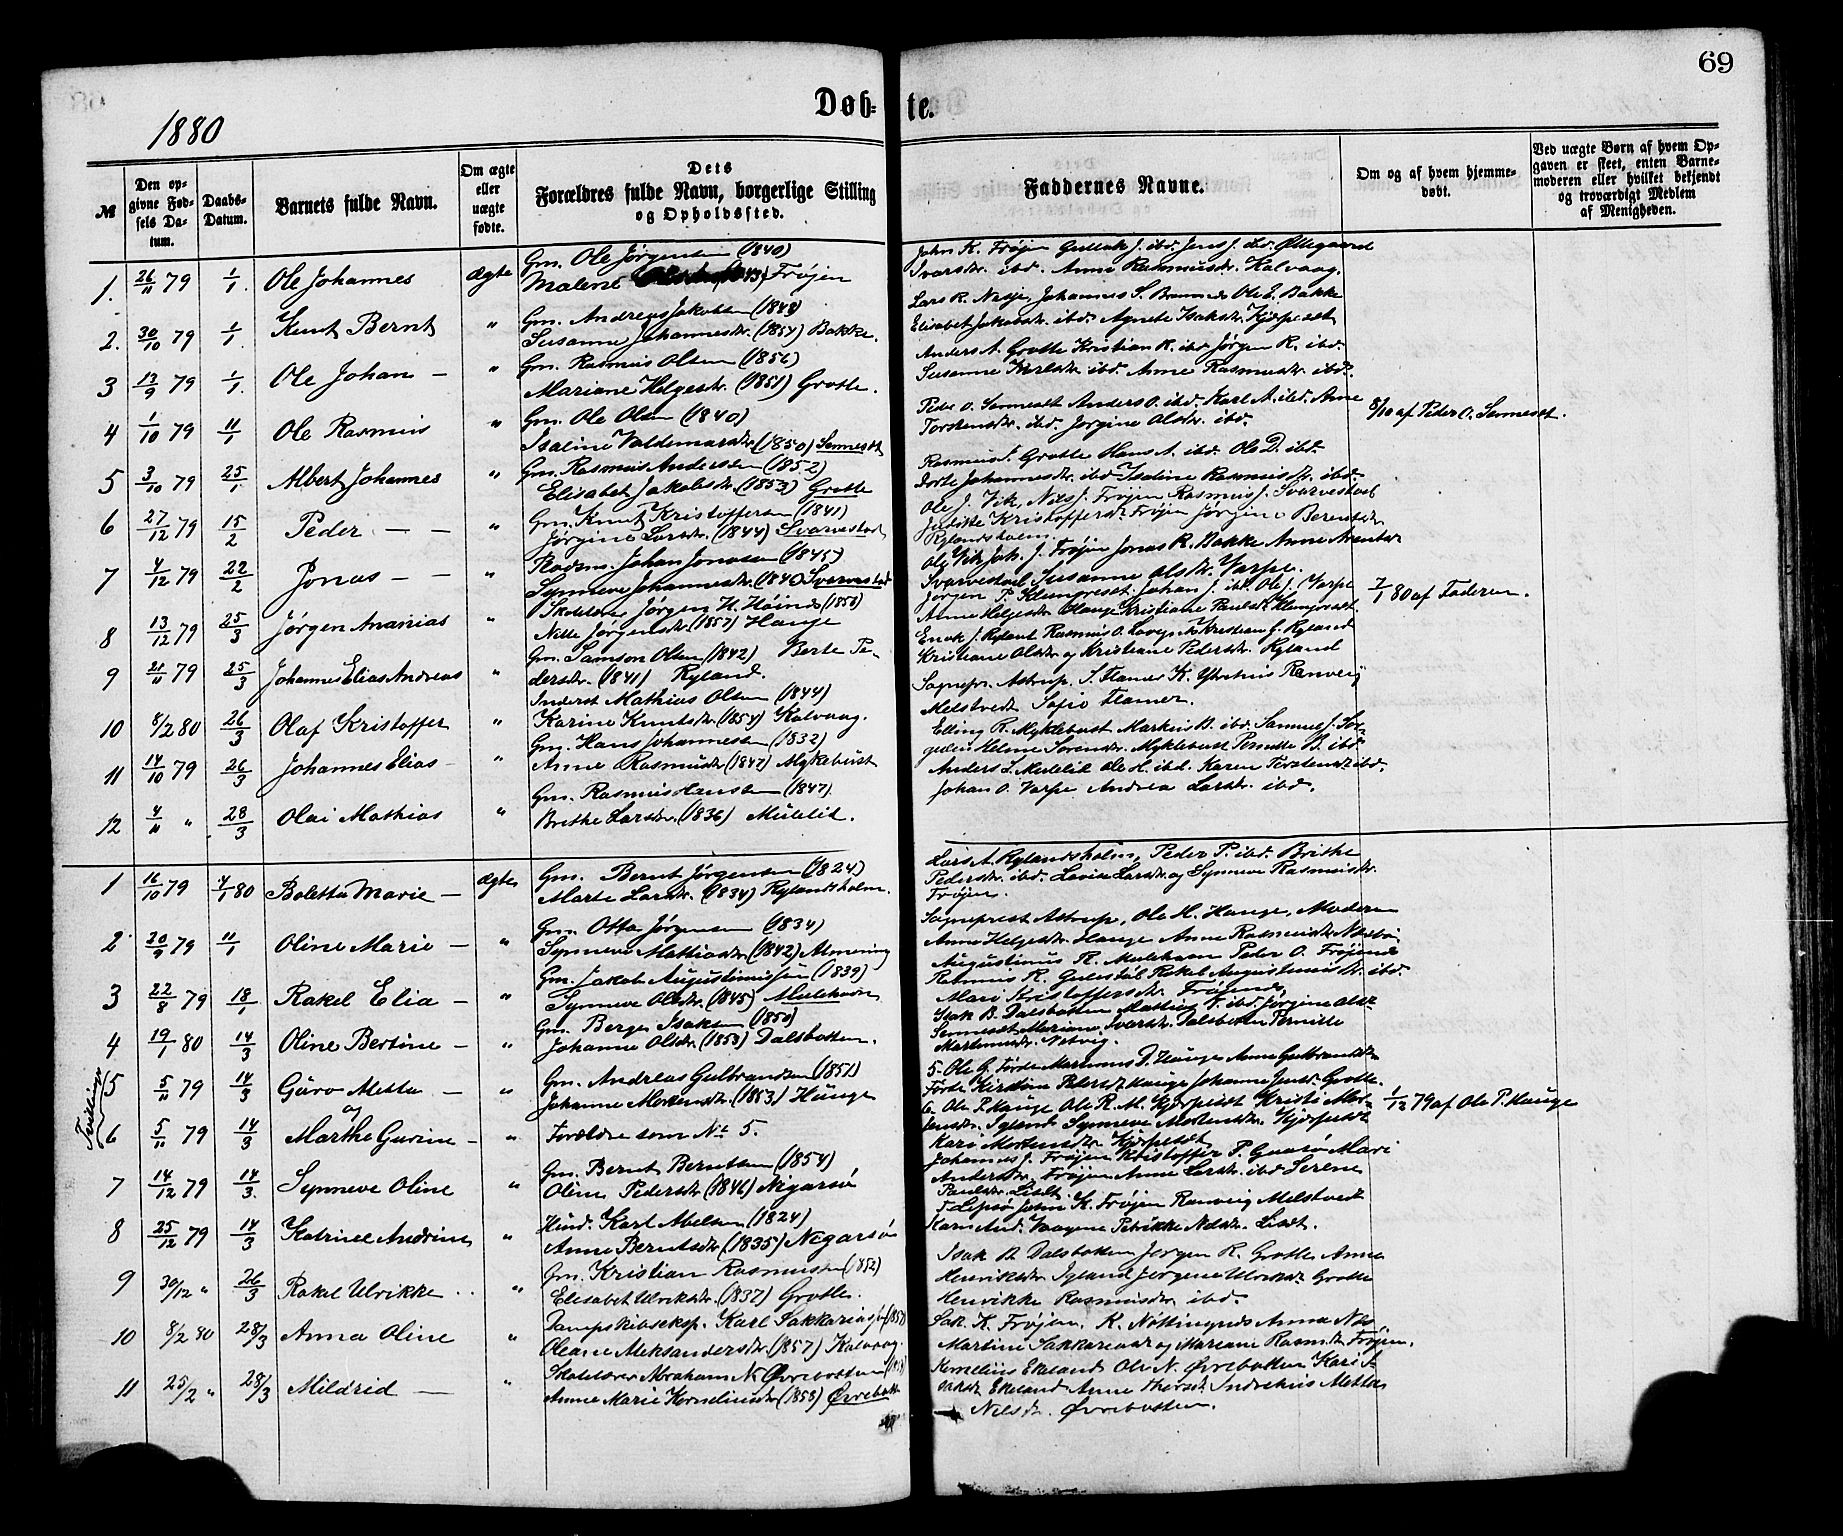 69
Døb- te.
1880
№
Den opgivne Fødsels Datum.
Daabs-Datum.
Barnets fulde Navn.
Om ægte eller uægte fødte.
Dets Forældres fulde Navn, borgerlige Stilling og Opholdssted.
Faddernes Navne.
Om og af hvem hjemmedøbt.
Ved uægte Børn af hvem Opgaven er skeet, enten Barnemoderen eller hvilket bekjendt og troværdigt Medlem af Menigheden.
1. 26/11 79 1/1. Ole Johannes Ægte Gm. Ole Jørgensen (1840)
Malene Frøjen
John K. Frøjen Gullak J. ibd. Jens J. ibd.
Ivarsdtr. ibd. Anne Rasmusdtr. Kalvaag.
2. 30/10 79 1/1. Knut Bernt " Gm. Andreas Jakobsen (1848)
Susanne Johannesdtr. (1854) Bakke.
Lars R. Nesje, Johannes S. Ole E. Bakke
Elisabet Jakobsdtr. ibd. Agnete Isaksdtr. Kjørpeset
3 13/9 79 1/1. Ole Johan - " Gm. Rasmus Olsen (1856)
Mariane Helgesdtr. (1851) Grotle.
Anders A. Grotle Kristian R. ibd. Jørgen R. ibd.
Susanne Karlsdtr. ibd. Anne Rasmusdtr. ibd.
4 1/10 79 11/1 Ole Rasmus " Gm. Ole Olsen (1840)
Isaline Valdemarsdtr. (1850) Senneset
Peder O. Senneset Anders O. ibd. Karl A. ibd. Anne
Torstensdtr. ibd. Jørgine Olsdtr. ibd.
8/10 af Peder O. Senneset.
5 3/10 79 25/1 Albert Johannes " Gm. Rasmus Andersen (1852)
Elisabet Jakobsdtr. (1853) Grotle
Rasmus J. Grotle Hans A. ibd. Ole D. ibd.
Dorte Johannesdtr. ibd. Isaline Rasmusdtr. ibd.
6 27/12 79 15/2 Peder - - " Gm. Knut Kristoffersen (1841)
Jørgine Larsdtr. (1844) Svarvestad
Ole J. Vik, Nils J. Frøjen Rasmus J. Svarvestad
Kristoffersdtr. Frøjen Jørgine Berentsdtr.
Rylandsholm.
7 4/12 79 22/2 Jonas - - " Johan Jonasen (1845)
Synneve Johannesdtr. (1840) Svarvestad
Ole Vik Jak. J. Frøjen Jonas R. Bakke Anne
Svarvestad Susanne Olsdtr. Varpe.
8 13/12 79 25/3 Jørgen Ananias " Skolelærer Jørgen H. (1850)
Nille Jørgensdtr. (1857) Hauge
Jørgen P. Klungreset Johan J. ibd. Ole J. Varpe
Anne Helgesdtr. Hauge Kristiane Paulsdtr. Klungreset.
7/1 80 af Faderen.
9 21/11 79 25/3 Johannes Elias Andreas " Gm. Samson Olsen (1842) Berte Pe-
dersdtr. (1841) Ryland.
Enok J. Ryland Rasmus O. Kristian G. Ryland
Kristiane Olsdtr. og Kristiane Pedersdtr. Ryland
10 8/2 80 26/3 Olaf Kristoffer " Inderst Mathias Olsen (1844)
Karine Knutsdtr. (1854) Kalvaag.
Sognepr. Astrup, I. Flamer K. Ranveig
Melstvedt Sofie Flamer.
11 14/10 79 26/3 Johannes Elias - " Gm. Hans Johannesen (1832)
Anne Rasmusdtr. (1842) Myklebust
Elling R. Myklebust Markus B. ibd. Samuel J.
Helene Sørensdtr. Myklebust Pernille B. ibd.
12 4/11 " 28/3 Olai Mathias " Gm. Rasmus Hansen (1847)
Brithe Larsdtr. (1836) Mulelid.
Anders L. Mulelid Ole H. ibd. Karen Torstensdtr. ibd.
Johan O. Varpe Andrea Larsdtr. ibd.
1 16/10 79 4/1 80 Boletta Marie - Ægte Gm. Bernt Jørgensen (1824)
Marte Larsdtr. (1834) Rylandsholm.
Lars A. Rylandsholm, Peder P. ibd. Brithe
Pedersdtr. ibd. Lovise Larsdtr. og Synneve Rasmusdtr.
Frøjen.
2 20/9 79 11/1 Oline Marie - " Gm. Otto Jørgensen (1834)
Synneve Mathiasdtr. (1842) Almening
Sogneprest Astrup, Ole H. Hauge, Moderen
Anne Helgesdtr. Hauge Anne Rasmusdtr.
3 22/8 79 18/1 Rakel Elia - " Gm. Jakob Augustinussen (1839)
Synneve Olsdtr. (1845) Mulehavn
Augustinus R. Mulehavn Peder O. Frøjen
Rasmus R. Gulestøl Rakel Augustinusdtr. ibd.
Mari Kristoffersdtr. Frøjen
4 19/1 80 14/3 Oline Bertine - " Gm. Berger Isaksen (1850)
Johanne Olsdtr. (1853) Dalsbotten.
Isak B. Dalsbotten Mathias V. ibd. Jørgine Olsdtr.
Senneset Mariane Ivarsdtr. Dalsbotten Pernille
Martinusdtr. Netvig.
Tvillinger
5 5/11 79 14/3 Guro Metta - " Gm. Andreas Gulbrandsen (1851)
Johanne Mortensdtr. (1853) Hauge
5. Ole G. Førde D. Hauge Anne Gulbrandsdtr.
Førde Kirstine Pedersdtr. Hauge Johanne Jensdtr. Grotle.
og
6 5/11 79 14/3 Marthe Gurine - " Forældre som № 5.
6. Ole P. Hauge Ole R. M. Kjørpeset Kristi Mor-
tensdtr. Igland Synneve Mortensdtr. Kjørpeset
Kari Mortensdtr. Kjørpeset
1/12 79 af Ole P. Hauge
7 14/12 79 14/3. Synneve Oline " Gm. Bernt Berntsen (1854)
Oline Pedersdtr. (1846) Nigarsø
Johannes J. Frøjen Kristoffer P. Mari
Andersdtr. Frøjen Anne Larsdtr. ibd. Serene
Paulsdtr. Liset.
8 25/12 79 14/3 Katrine Andrine " Huusd. Karl Abelsen (1824)
Anne Berntsdtr. (1835) Nigarsø
John K. Frøjen Ranveig Melstvedt
Karn And. Vaagene Petrikke Nelsdtr. Liset.
9 30/12 " 26/3 Rakel Ulrikke " Gm. Kristian Rasmussen (1852)
Elisabet Ulriksdtr. (1837) Grotle.
Isak B. Dalsbotten Jørgen R. Grotle Anne
Henriksdtr. Igland Jørgine Ulriksdtr. Grotle
Henrikke Rasmusdtr. ibd.
10 8/2 80 28/3 Anna Oline " Dampskibseksp. Karl Sakkariasen
Oleane Aleksandersdtr. (1857) Kalvaag.
Sak. K. Frøjen, K. Nøttingnes Anna
Martine Sakkariasdtr. og Mariane Rasmdtr. Frøjen.
11 25/2 " 28/3 Mildrid - " Skolelærer Abraham N. Øvrebotten
Anne Marie Kornelius dtr. (1858) Øvrebott
Kornelius Ekeland Ole N. Øvrebotten Kari
Ekeland Anne Indrehus Metta
Nilsdtr. Øvrebotten.